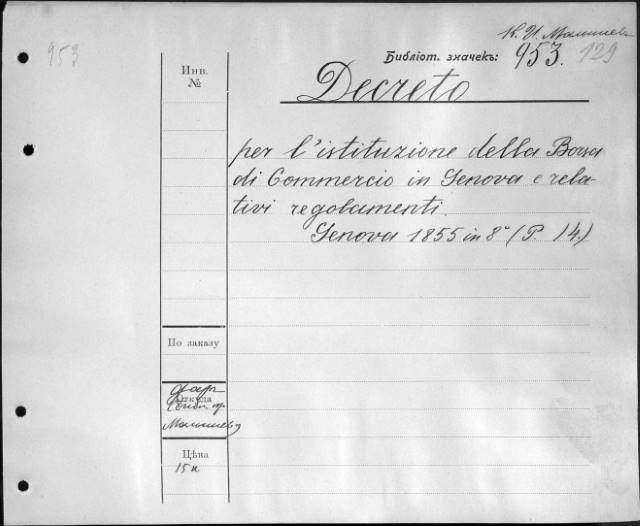 К. И. Малышев
953
Библіот. значекъ: 953. 129
Инв.
№
Decreto
per l'istituzione della Borsa
di Commercio in Genova e rela-
tivi regolamenti.
Genova 1855 in 8° (P. 14.)
По заказу
Откуда
дар
Малышева
Цѣна
15 к